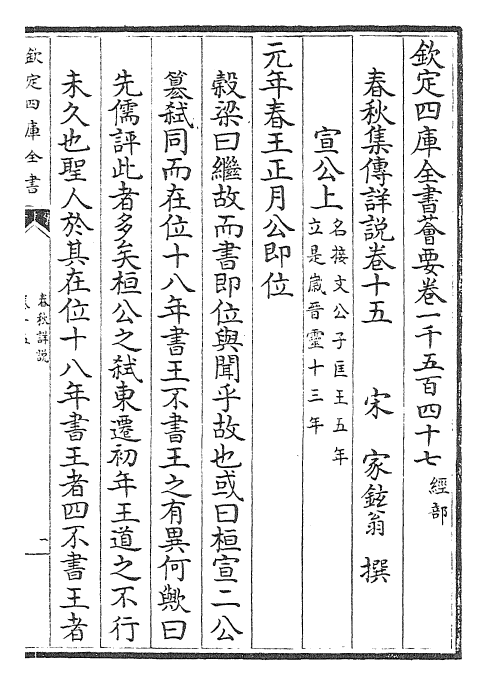 欽定四庫全書薈要卷一千五百四十七 經部
春秋集傳詳說卷十五 宋 家鉉翁 撰
宣公上 名接文公子匡王五年
立是歲晉靈十三年
元年春王正月公即位
穀梁曰繼故而書即位與聞乎故也或曰桓宣二公
簒弑同而在位十八年書王不書王之有異何歟曰
先儒評此者多矣桓公之弑東遷初年王道之不行
未久也聖人於其在位十八年書王者四不書王者
欽定四庫全書
春秋詳說
一